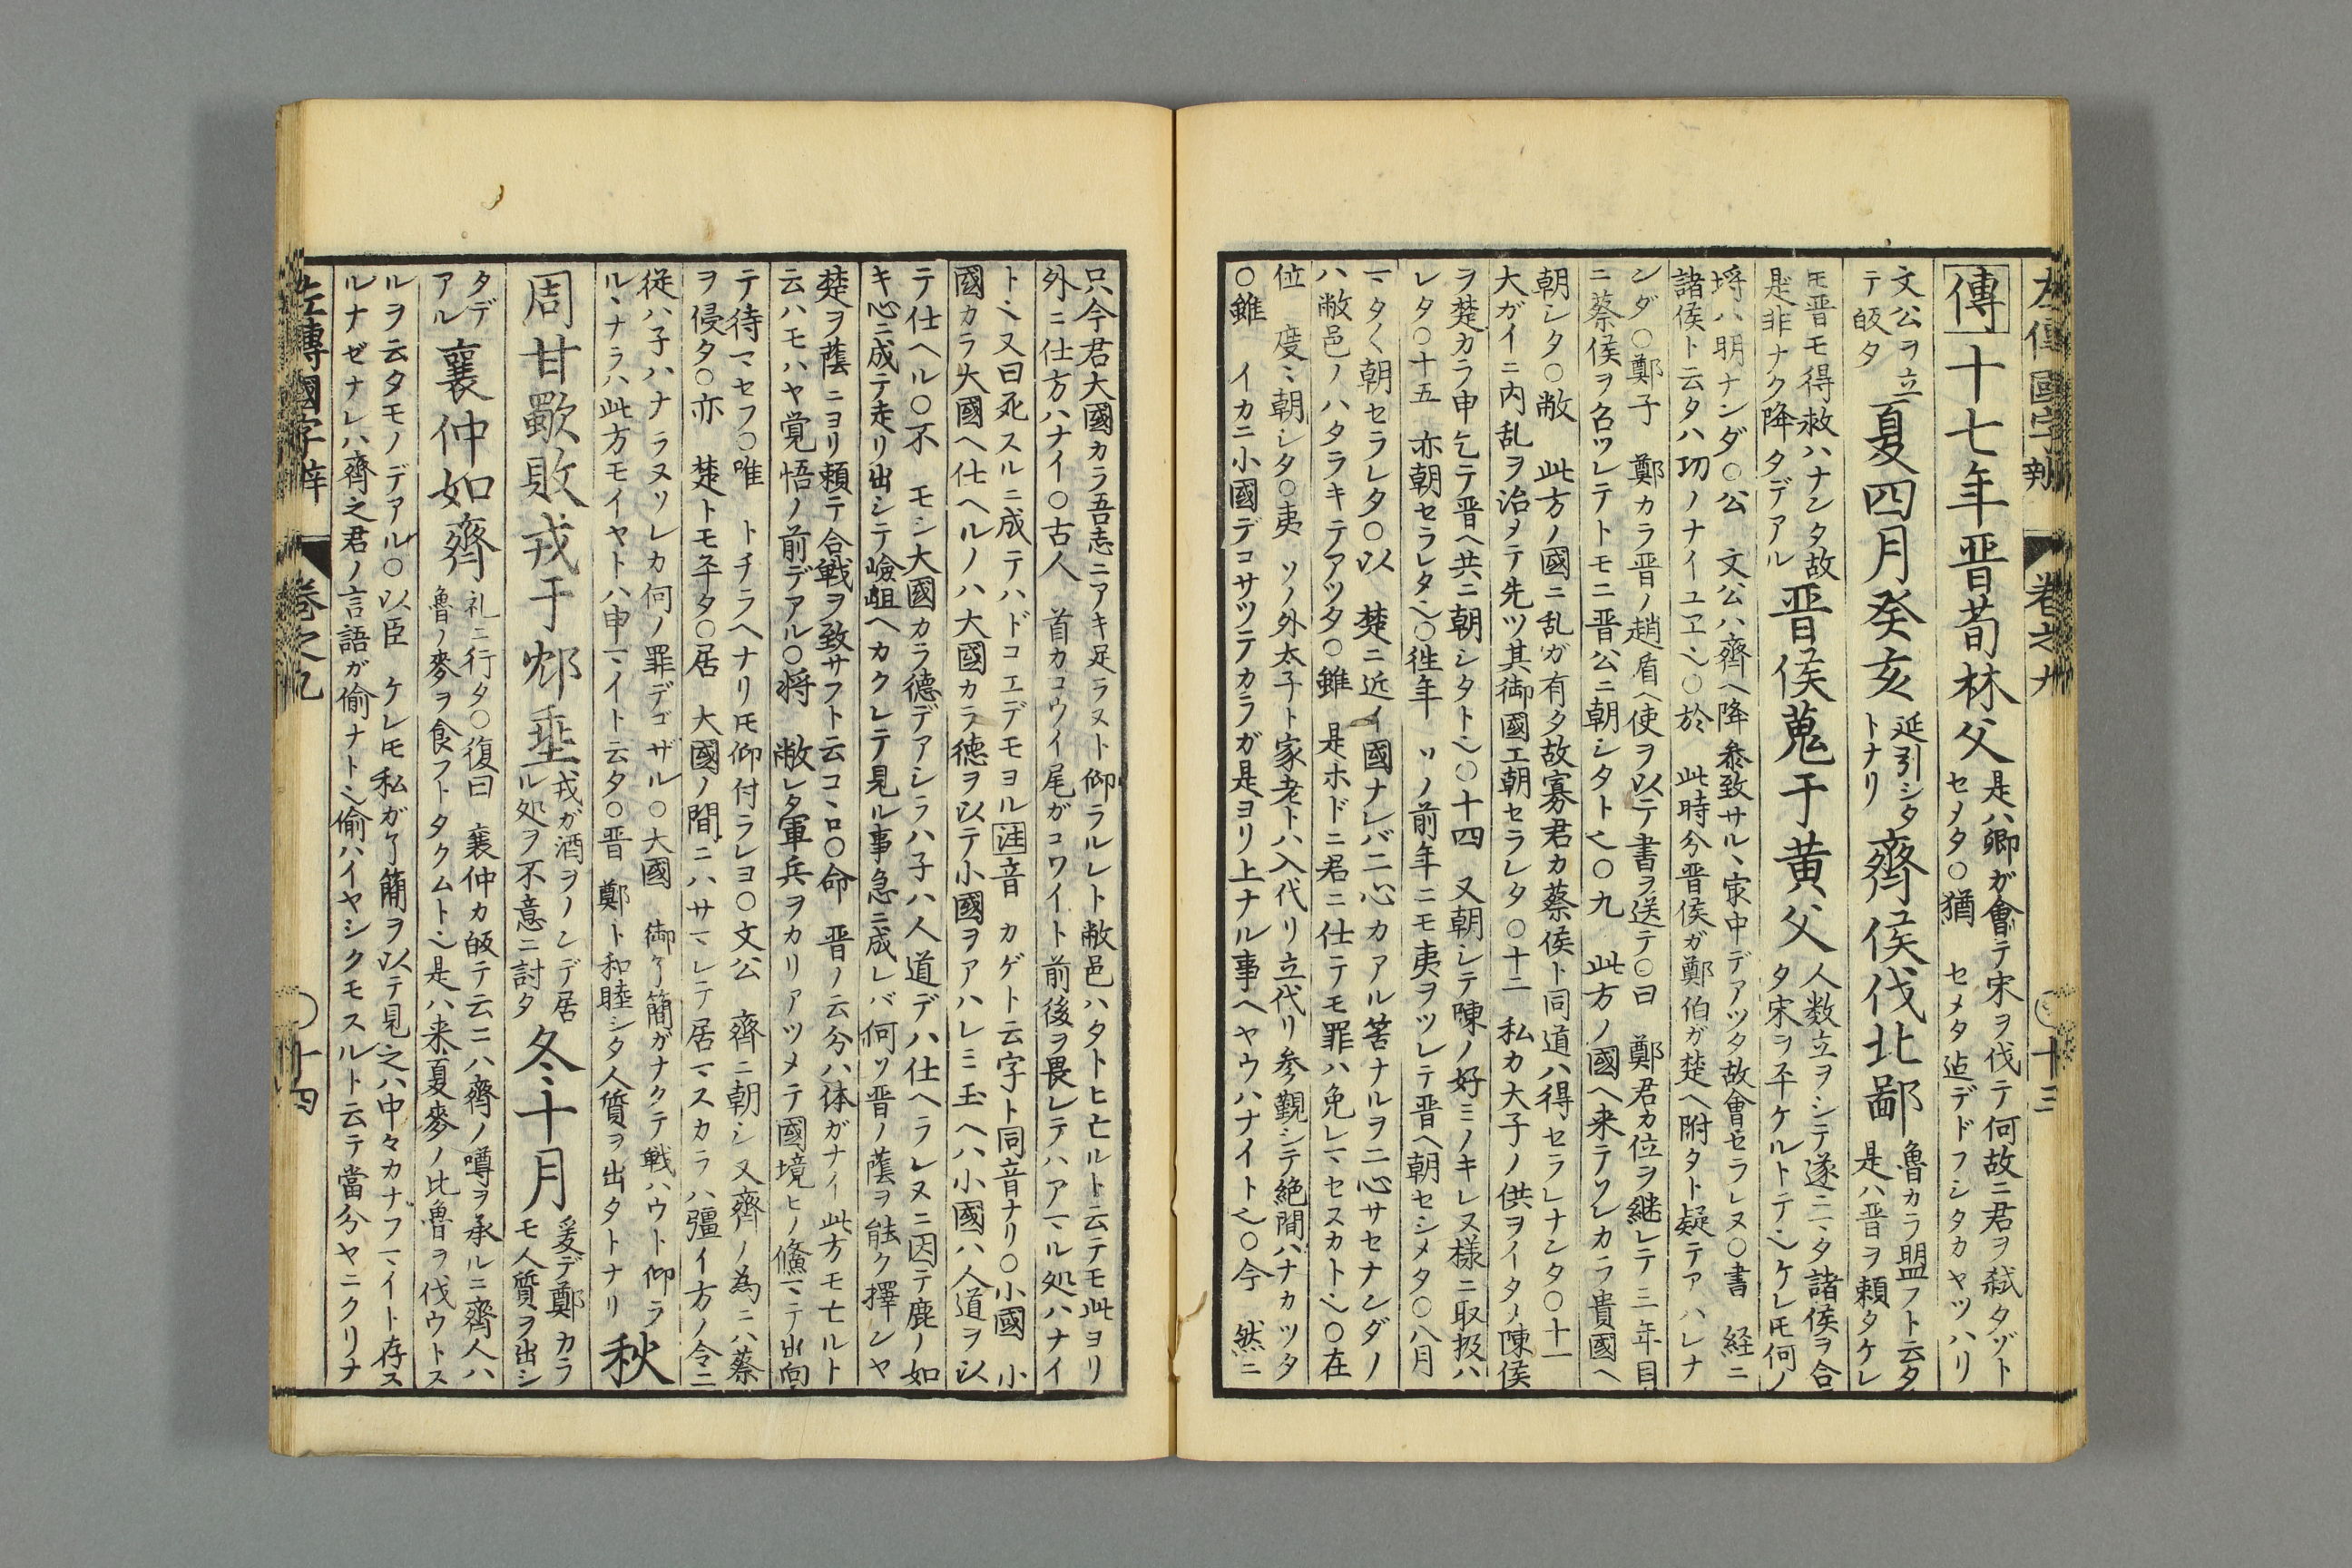 左傳國字辨 巻之九 十三
傳 十七年晋荀林父
是ハ卿ガ會テ宋ヲ伐テ何故ニ君ヲ弑タゾト
セメタ〇猶 セメタ迠デドフシタカヤツハリ
文公ヲ立
テ皈タ
夏四月癸亥
延引シタ
トナリ
齊侯伐北鄙
魯カラ盟フト云タ
是ハ晋ヲ頼タケレ
𪜈晋モ得救ハナンタ故
是非ナク降タデアル
晋侯蒐于黄父
人数立ヲシテ遂ニマタ諸侯ヲ合
タ宋ヲ平ケルトテ也ケレ𪜈何ノ
埒ハ明ナンダ〇公 文公ハ齊ヘ降叅致サル、家中デアツタ故會セラレヌ〇書 経ニ
諸侯ト云タハ功ノナイユヱ也〇於 此時分晋侯ガ鄭伯ガ楚ヘ附タト疑テアハレナ
ンダ〇鄭子 鄭カラ晋ノ趙盾ヘ使ヲ以テ書ヲ送テ〇曰 鄭君カ位ヲ継レテ三年目
ニ蔡侯ヲ召ツレテトモニ晋公ニ朝シタト也〇九 此方ノ國ヘ来テソレカラ貴國ヘ
朝シタ〇敝 此方ノ國ニ乱ガ有タ故寡君カ蔡侯ト同道ハ得セラレナンタ〇十一
大ガイニ内乱ヲ治ヲテ先ツ其御國エ朝セラレタ〇十二 私カ大子ノ供ヲイタシ陳侯
ヲ楚カラ申乞テ晋ヘ共ニ朝シタト也〇十四 又朝シテ陳ノ好ミノキレヌ様ニ取扱ハ
レタ〇十五 亦朝セラレタ也〇徃年 ソノ前年ニモ夷ヲツレテ晋ヘ朝セシメタ〇八月
マタ〱朝セラレタ〇以 楚ニ近イ國ナレバ二心カアル筈ナルヲ二心サセナンダノ
ハ敝邑ノハタラキテアツタ〇雖 是ホドニ君ニ仕テモ罪ハ免レマセスカト也〇在
位 度〻朝シタ〇夷 ソノ外太子ト家老トハ入代リ立代リ参覲シテ絶間ハナカツタ
〇雖 イカニ小國デコサツテカラガ是ヨリ上ナル事ヘヤウハナイト也〇今 然ニ
只今君大國カラ吾志ニアキ足ラヌト仰ラルレト敝邑ハタトヒ亡ルト云テモ此ヨリ
外ニ仕方ハナイ〇古人 首カコワイ尾ガコワイト前後ヲ畏レテハアマル処ハナイ
ト也又曰死スルニ成テハドコエデモヨル 注 音 カゲト云字ト同音ナリ〇小國 小
國カラ大國ヘ仕ヘルノハ大國カラ徳ヲ以テ小國ヲアハレミ玉ヘハ小國ハ人道ヲ以
テ仕ヘル〇不 モシ大國カラ德デアシラハ子ハ人道デハ仕ヘラレヌニ因テ鹿ノ如
キ心ニ成テ走リ出シテ嶮岨ヘカクレテ見ル事急ニ成レバ何ソ晋ノ蔭ヲ能ク擇シヤ
楚ヲ蔭ニヨリ頼テ合戦ヲ致サフト云コヽロ〇命 晋ノ云分ハ体ガナイ此方モ亡ルト
云ハモハヤ覚悟ノ前デアル〇将 敝レタ軍兵ヲカリアツメテ國境ヒノ鯈マテ出向
テ待マセフ〇唯 トチラヘナリ𪜈仰付ラレヨ〇文公 齊ニ朝シ又齊ノ為ニハ蔡
ヲ侵タ〇亦 楚トモ平タ〇居 大國ノ間ニハサマレテ居マスカラハ彊イ方ノ令ニ
従ハ子ハナラヌソレカ何ノ罪デゴザル〇大國 御了簡ガナクテ戦ハウト仰ラ
ル、ナラハ此方モイヤトハ申マイト云タ〇晋 鄭ト和睦シタ人質ヲ出タトナリ
秋
周甘歜敗戎于邥垂
戎ガ酒ヲノンデ居
ル処ヲ不意ニ討タ
冬十月
爰デ鄭カラ
モ人質ヲ出シ
タデ
アル
襄仲如齊
礼ニ行タ〇復曰 襄仲カ皈テ云ニハ齊ノ噂ヲ承ルニ齊人ハ
魯ノ麥ヲ食フトタクムト也是ハ来夏麥ノ比魯ヲ伐ウトス
ルヲ云タモノデアル〇以臣 ケレ𪜈私ガ了簡ヲ以テ見之ハ中々カナフマイト存ス
ルナゼナレハ齊之君ノ言語ガ偷ナト也偷ハイヤシクモスルト云テ當分ヤニクリナ
左傳國字辨 巻之九 十四